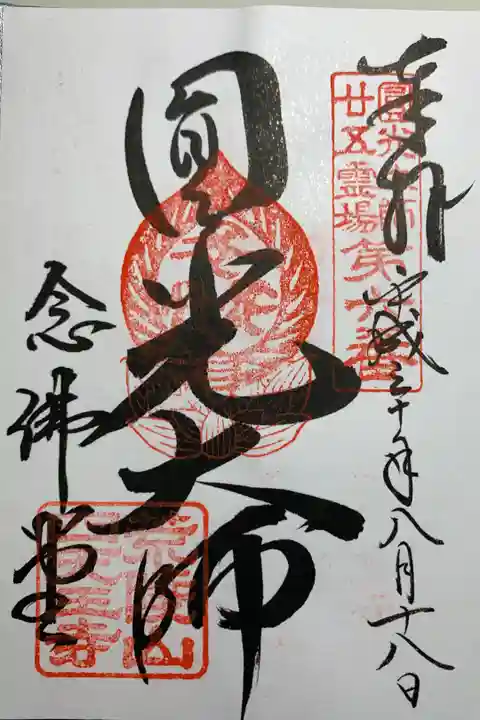 奉拝
平成三十年八月十八日
圓光大師
廿五霊場第六番
圓光大師
念佛堂